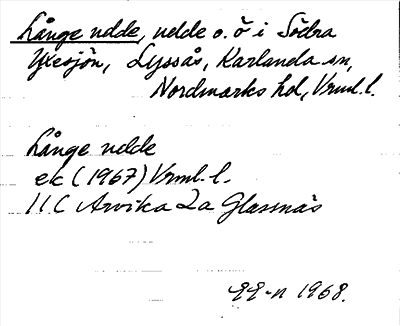 Långe udde, udde o. ö i Södra
Yxesjön, Lyssås, Karlanda sn,
Nordmarks hd, Vrml. l.
Långe udde
ek (1967) Vrml. l.
11C Arvika 2a Glasnäs
1968.